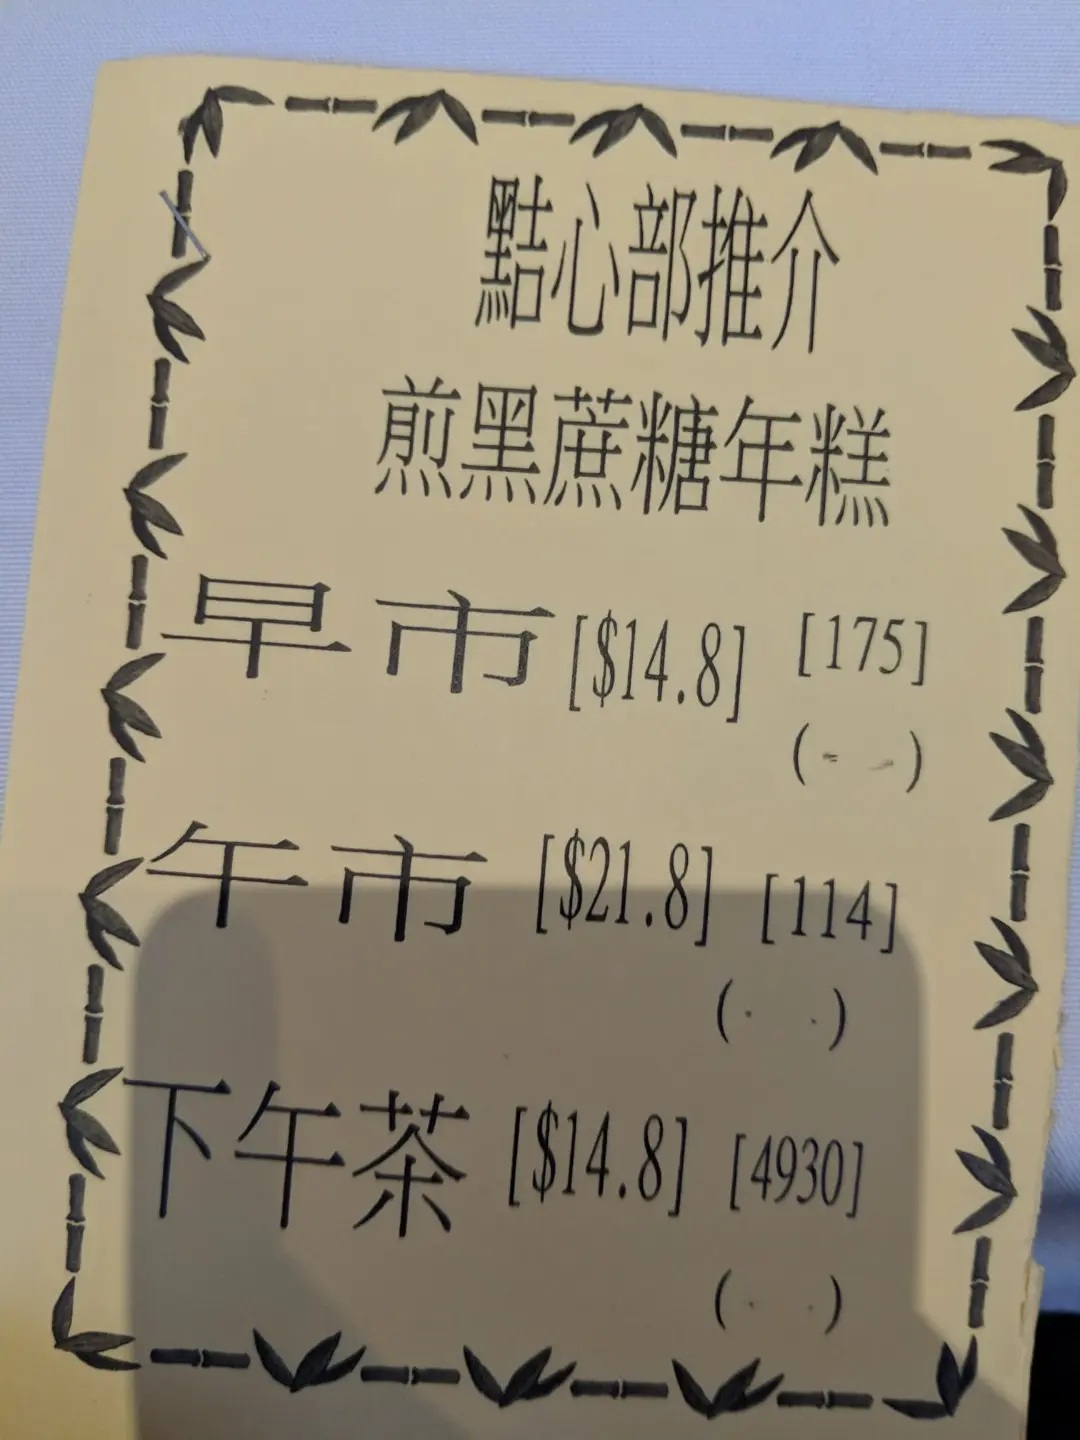 點心部推介
煎黑蔗糖年糕
早市 [$14.8] [175]
( )
午市 [$21.8] [114]
( )
下午茶 [$14.8] [4930]
( )